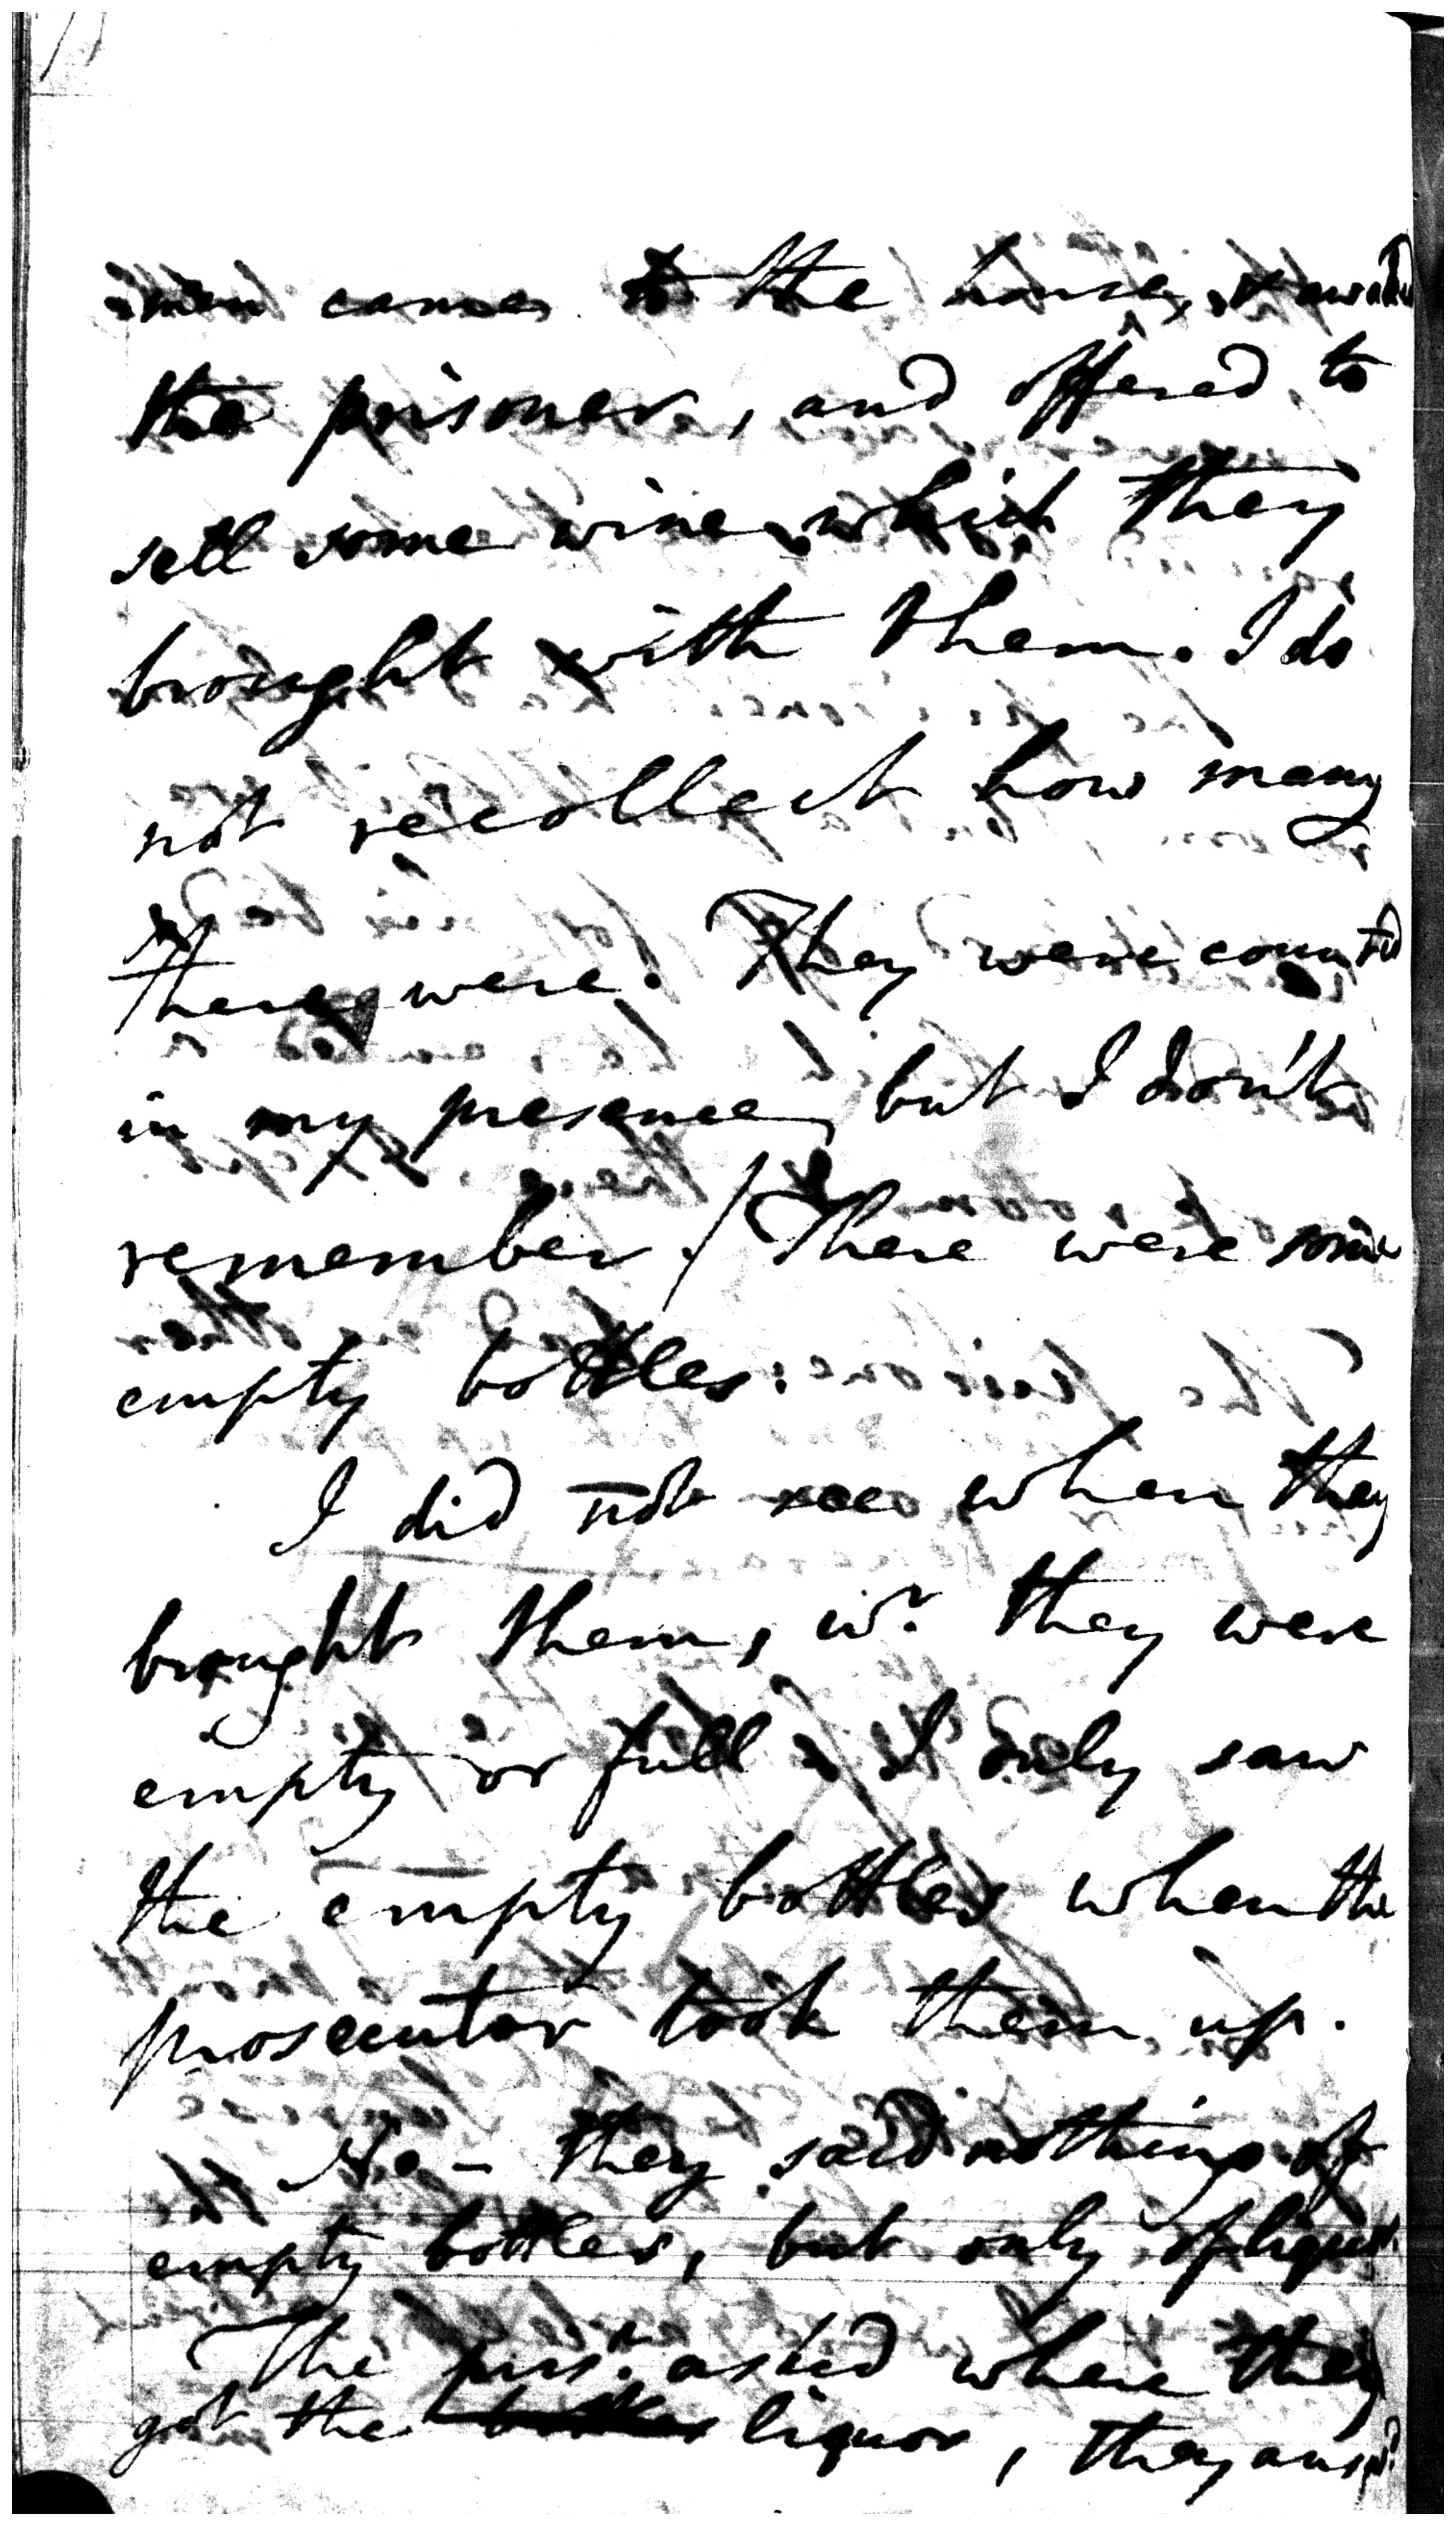 men came to the house, & awaked
the prisoner, and offered to
sell some wine which they
brought with them. I do
not recollect how many
there were. They were counted
in my presence, but I don't
remember. / There were some
empty bottles.
I did not see when they
brought them, wr. they were
empty or full & I only saw
the empty bottles when the
prosecutor took them up.
No – they said nothing of
empty bottles, but only of liquor.
The pris.r asked where they
got the liquor, they answd.